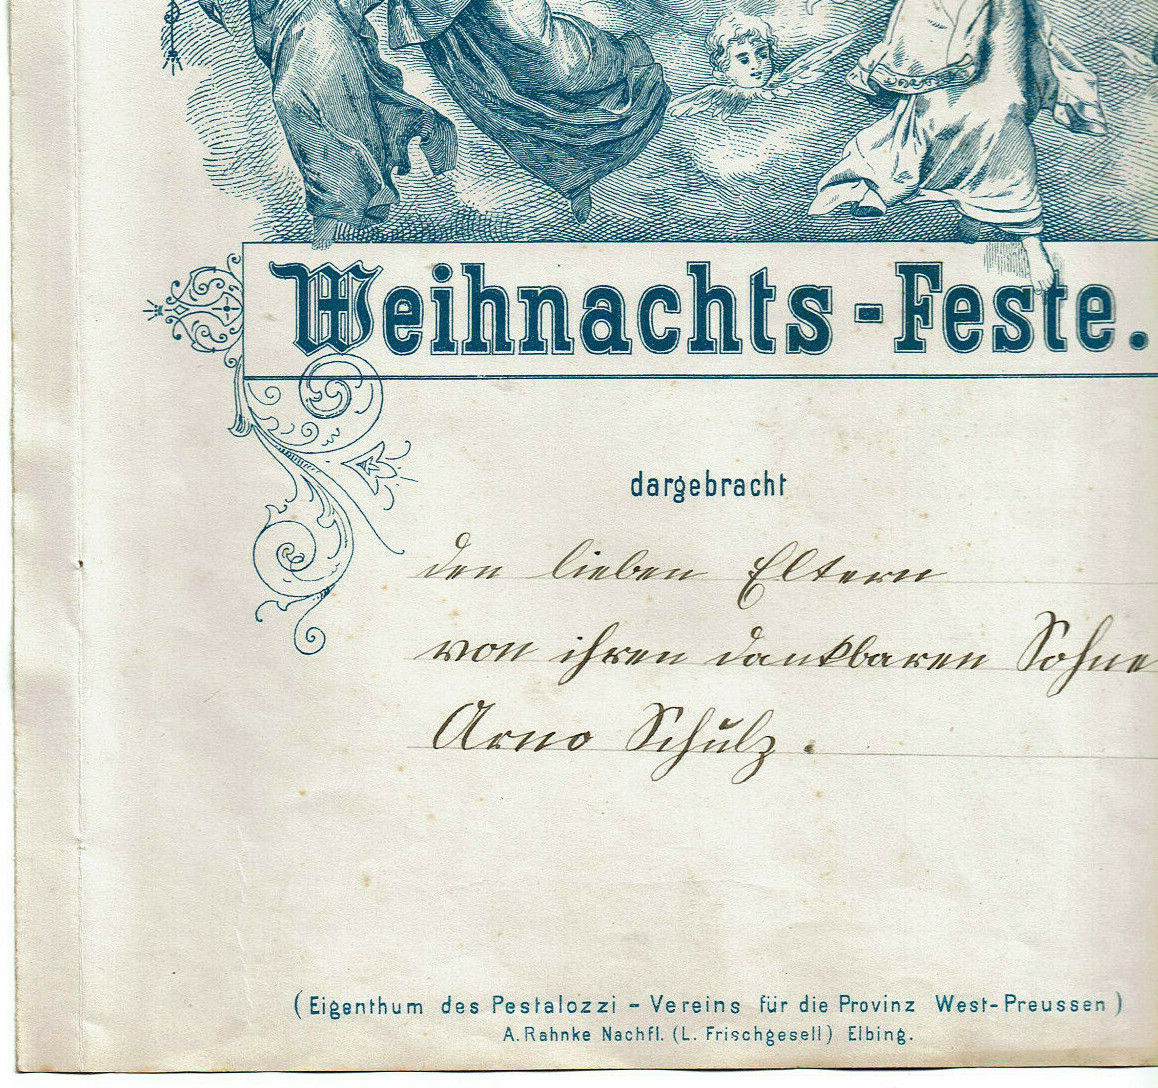 Weihnachts-Feste.
dargebracht
den lieben Eltern
von ihren dankbaren Sohne
Arno Schulz.
(Eigenthum des Pestalozzi - Vereins für die Provinz West-Preussen)
A. Rahnke Nachfl. (L. Frischgesell) Elbing.